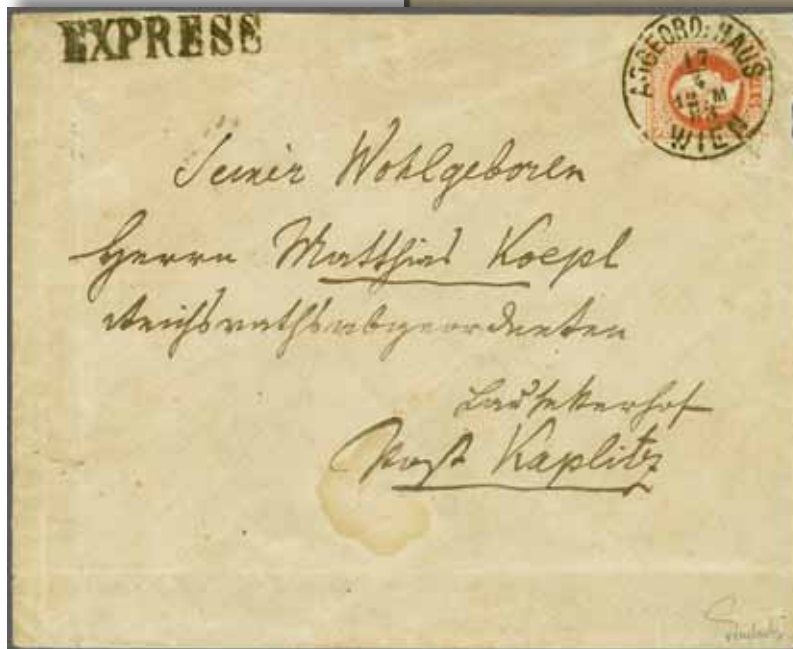 EXPRESS
ABGEORD: HAUS
17
4
12 M
WIEN
Seiner Wohlgeboren
Herrn Matthias Koepl
Reichsrathsabgeordneten
Post Kaplitz